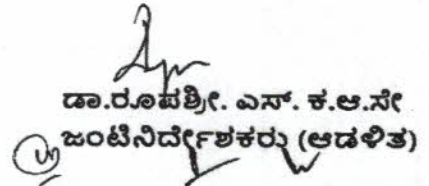 ಡಾ.ರೂಪಶ್ರೀ. ಎಸ್. ಕ.ಆ.ಸೇ
ಜಂಟಿನಿರ್ದೇಶಕರು (ಆಡಳಿತ)